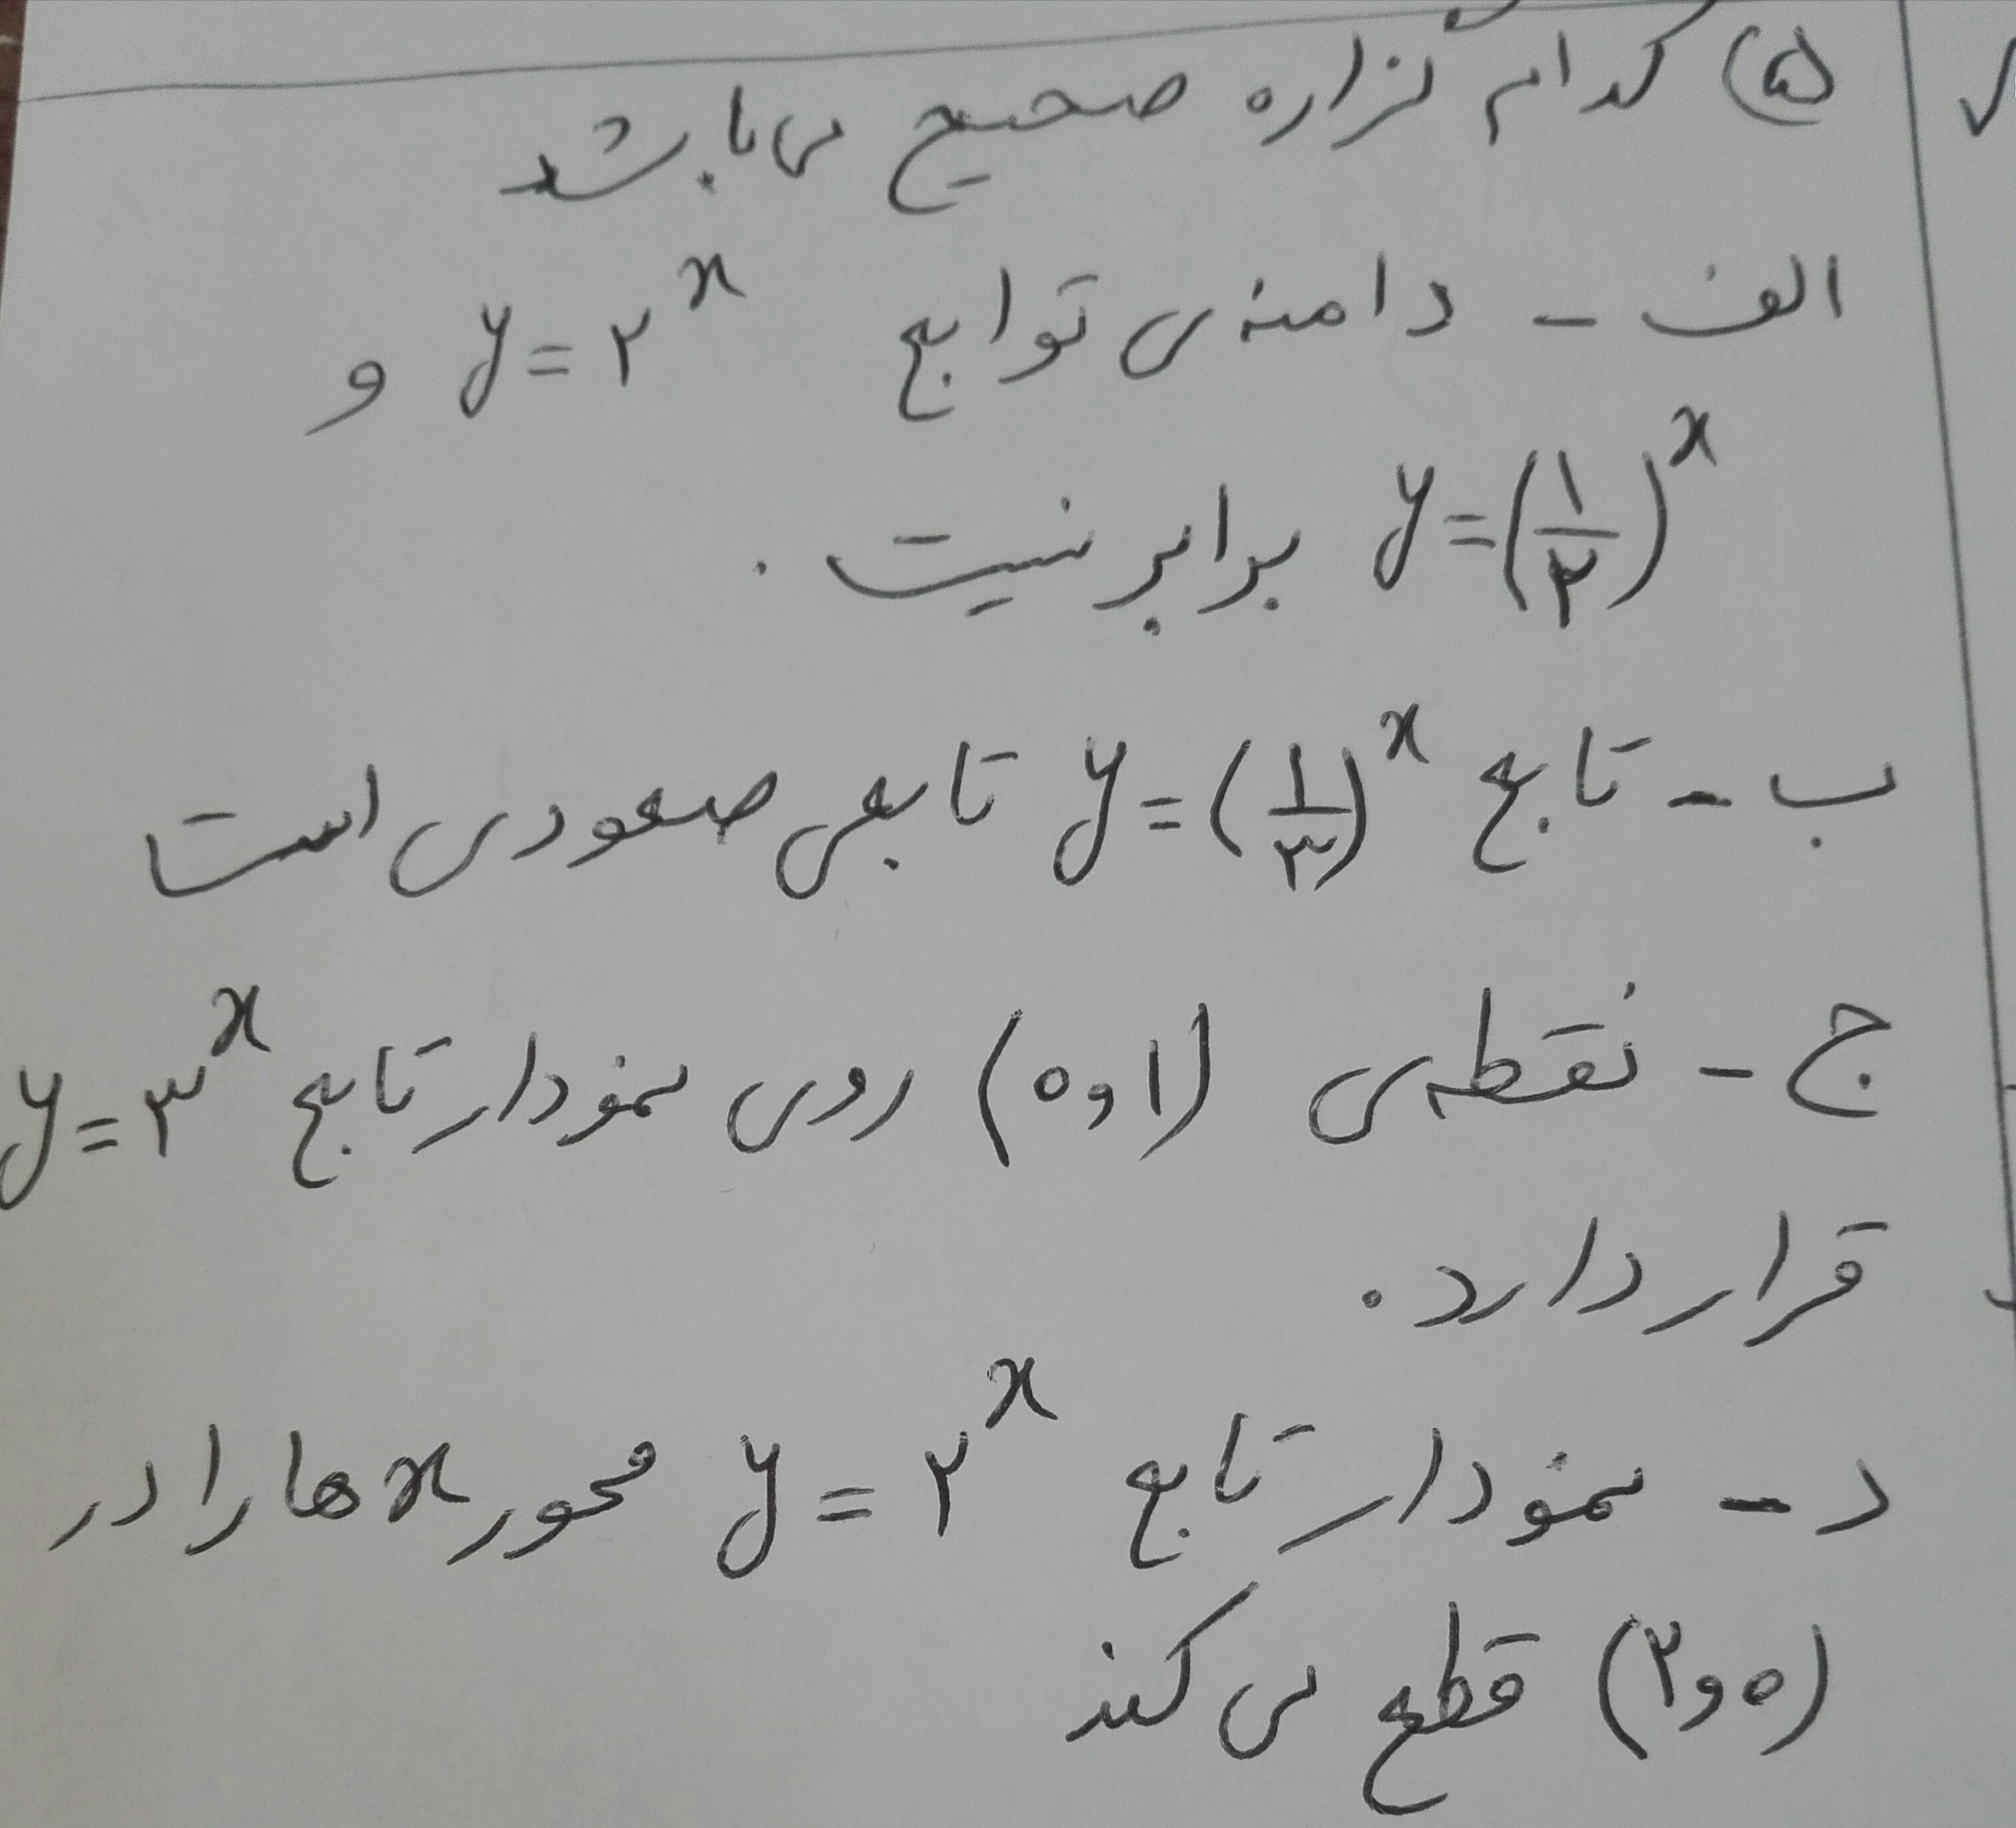 ۵) کدام گزاره صحیح می باشد
الف - دامنه ی توابع y = ۲^x و
y = (۱/۲)^x برابر نیست .
ب - تابع y = (۱/۳)^x تابعی صعودی است
ج - نقطه ی (۰ و ۱) روی نمودار تابع y = ۳^x
قرار دارد .
د - نمودار تابع y = ۲^x محور x ها را در
(۲ و ۰) قطع می کند